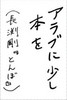 アラブに少し
本を
(長渕剛『とんぼ』)